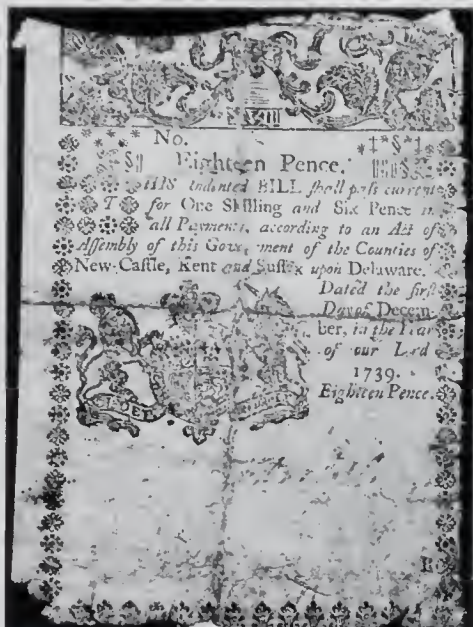 XVIII
No.
Eighteen Pence.
THIS indented BILL shall pass current
for One Shilling and Six Pence in
all Payments, according to an Act of
Assembly of this Government of the Counties of
New-Castle, Kent and Sussex upon Delaware.
Dated the first
Day of Decem-
ber, in the Year
of our Lord
1739.
Eighteen Pence.